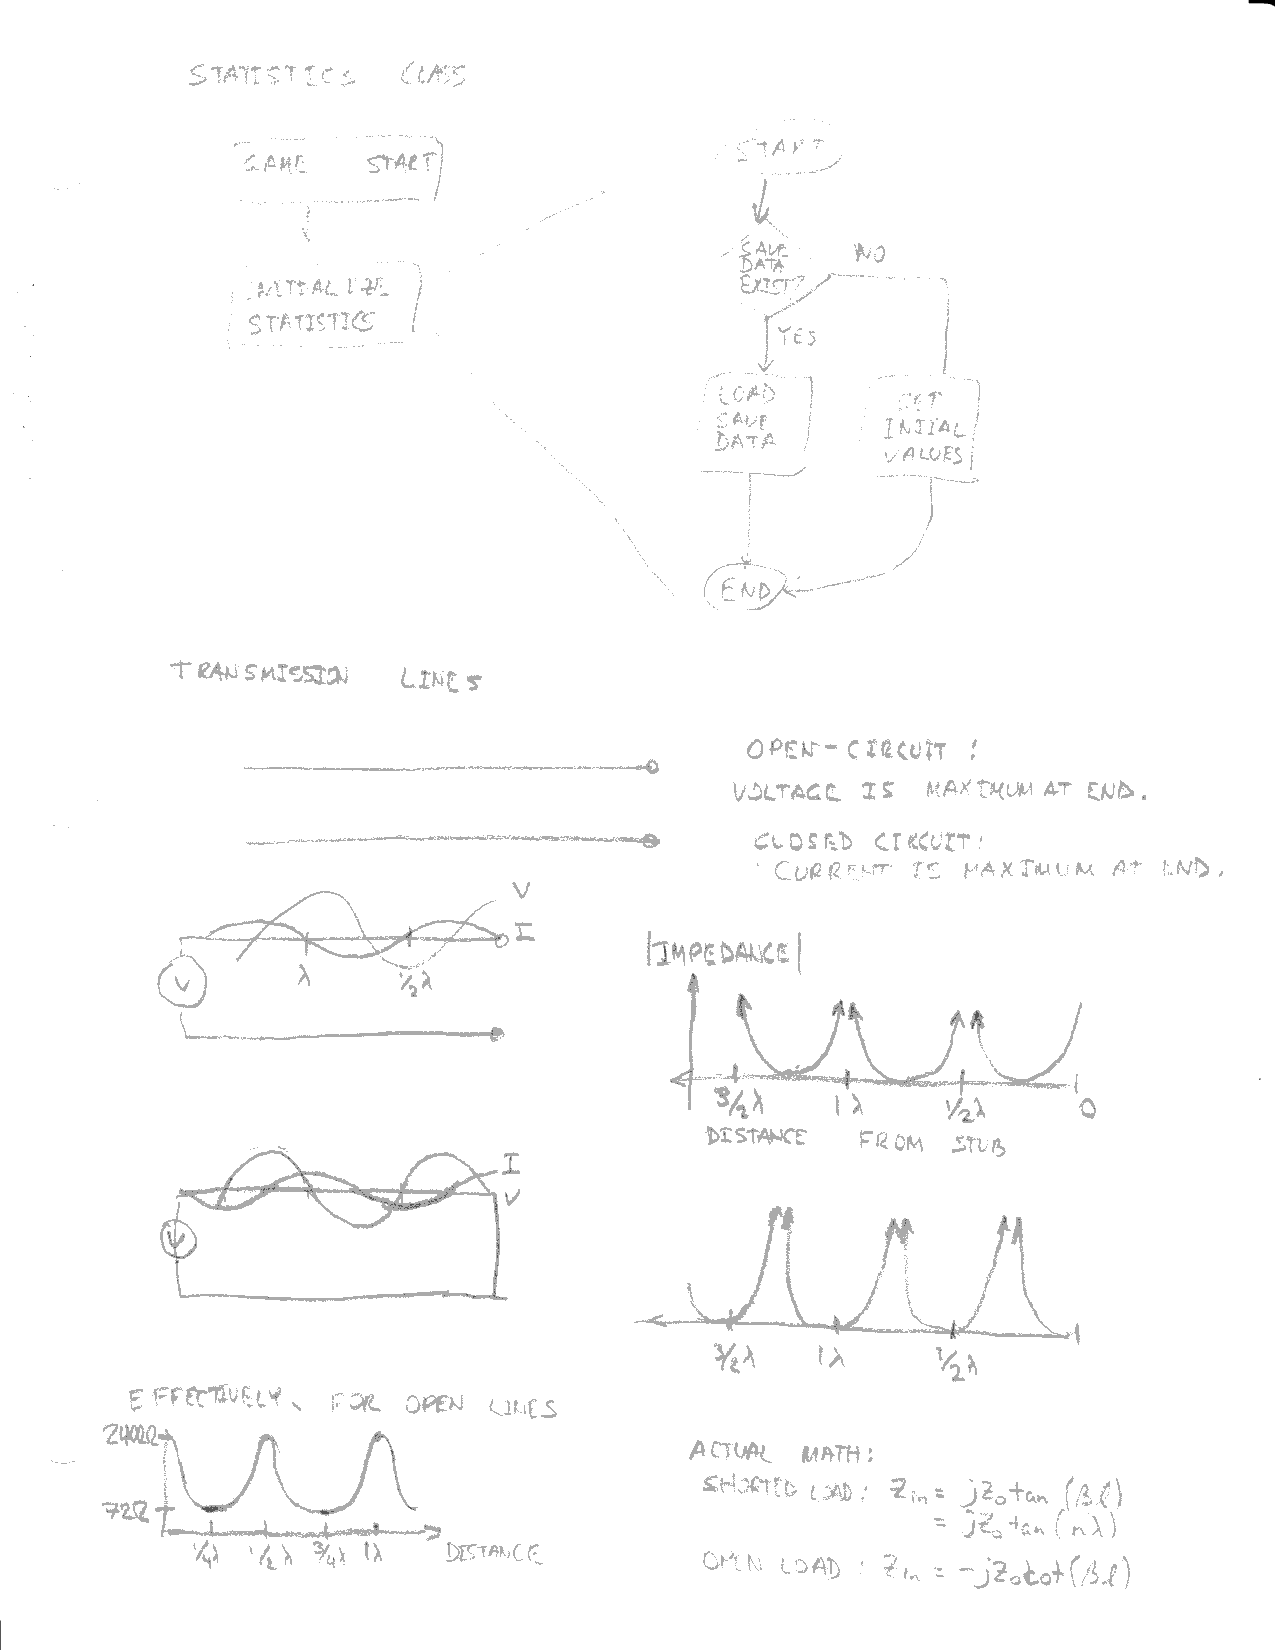 STATISTICS CLASS
GAME START
INITIALIZE
STATISTICS
START
SAVE
DATA
EXIST?
NO
YES
LOAD
SAVE
DATA
SET
INITIAL
VALUES
END
TRANSMISSION LINES
OPEN-CIRCUIT:
VOLTAGE IS MAXIMUM AT END.
CLOSED CIRCUIT:
CURRENT IS MAXIMUM AT END.
V
I
λ
1/2λ
V
|IMPEDANCE|
3/2λ
1λ
1/2λ
0
DISTANCE FROM STUB
I
V
V
3/2λ
1λ
1/2λ
EFFECTIVELY, FOR OPEN LINES
240Ω
72Ω
1/4λ
1/2λ
3/4λ
1λ
DISTANCE
ACTUAL MATH:
SHORTED LOAD: Zin = jZ0 tan(βℓ)
= jZ0 tan(nλ)
OPEN LOAD: Zin = -jZ0 cot(βℓ)